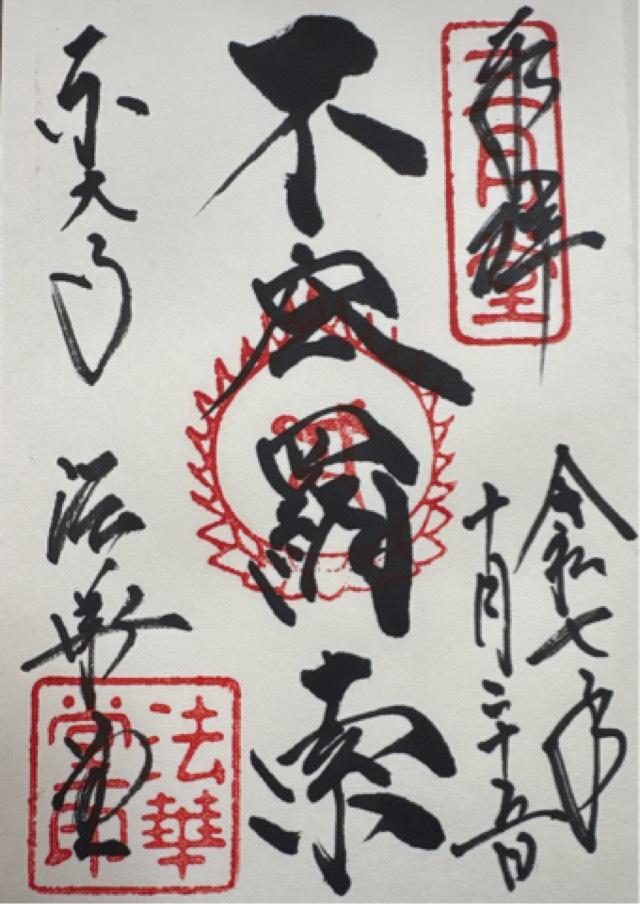 奉拝
三月堂
令和七年
十月二十五日
不空羂索
東大寺
法華堂
法華堂印